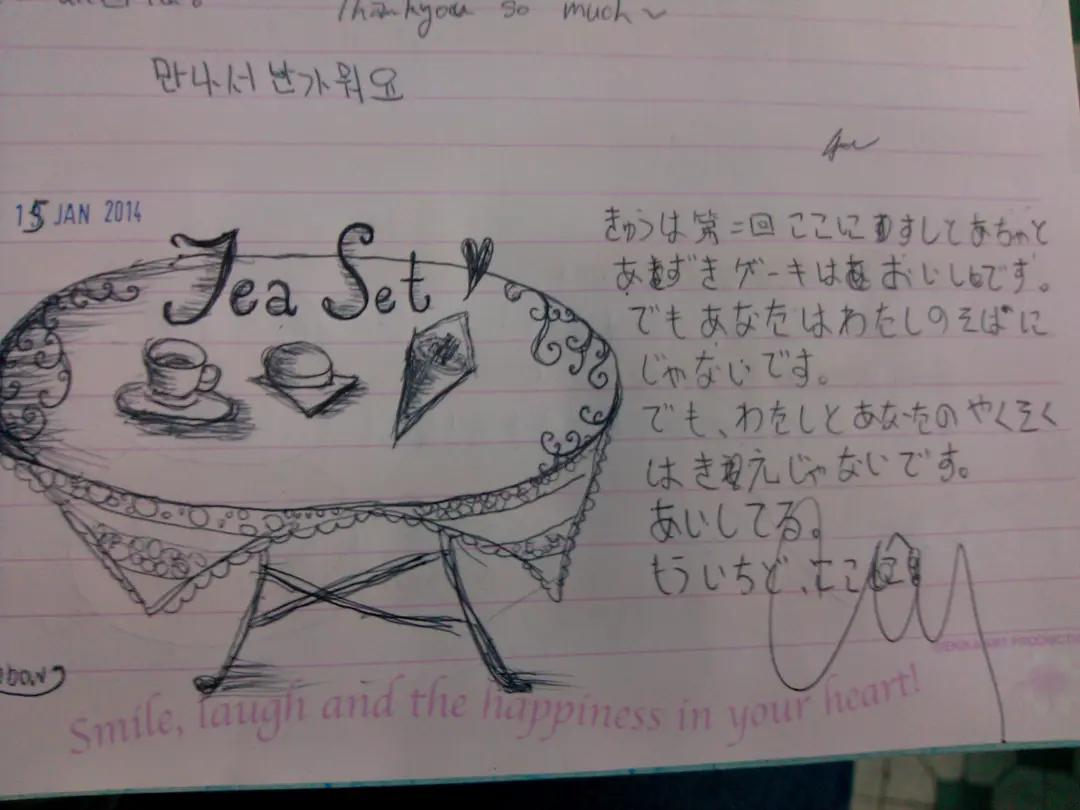 Thankyou so much~
만나서 반가워요
15 JAN 2014
Tea Set
きゅうは第二回ここにますしとあちゃと
あずきゲーキはおいしいです。
でもあなたはわたしのそばに
じゃないです。
でも、わたしとあなたのやくそく
はきえじゃないです。
あいしてる。
もういちど、
Smile, laugh and the happiness in your heart!